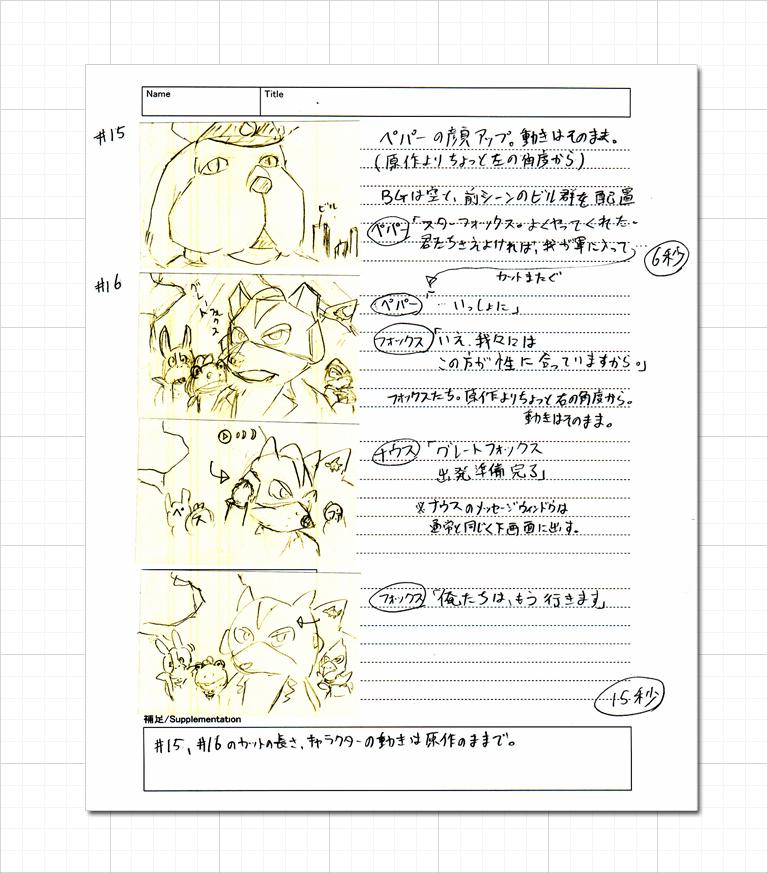 Name
Title
#15
ペパーの顔アップ。動きはそのまま。
(原作よりちょっと左の角度から)
BGは空で、前シーンのビル群を配置
ビル
ペパー「スターフォックス。よくやってくれた。
君たちさえよければ、我が軍に入って
6秒
カットまたぐ
#16
グレートフォックス
ペパー「いっしょに」
フォックス「いえ、我々には
この方が性に合っていますから。」
フォックスたち。原作よりちょっと右の角度から。
動きはそのまま。
ナウス「グレートフォックス
出発準備完了」
ペ
ス
ファ
※ナウスのメッセージウィンドウは
通常と同じく下画面に出す。
フォックス「俺たちは、もう行きます」
15秒
補足/Supplementation
#15、#16のカットの長さ、キャラクターの動きは原作のままで。